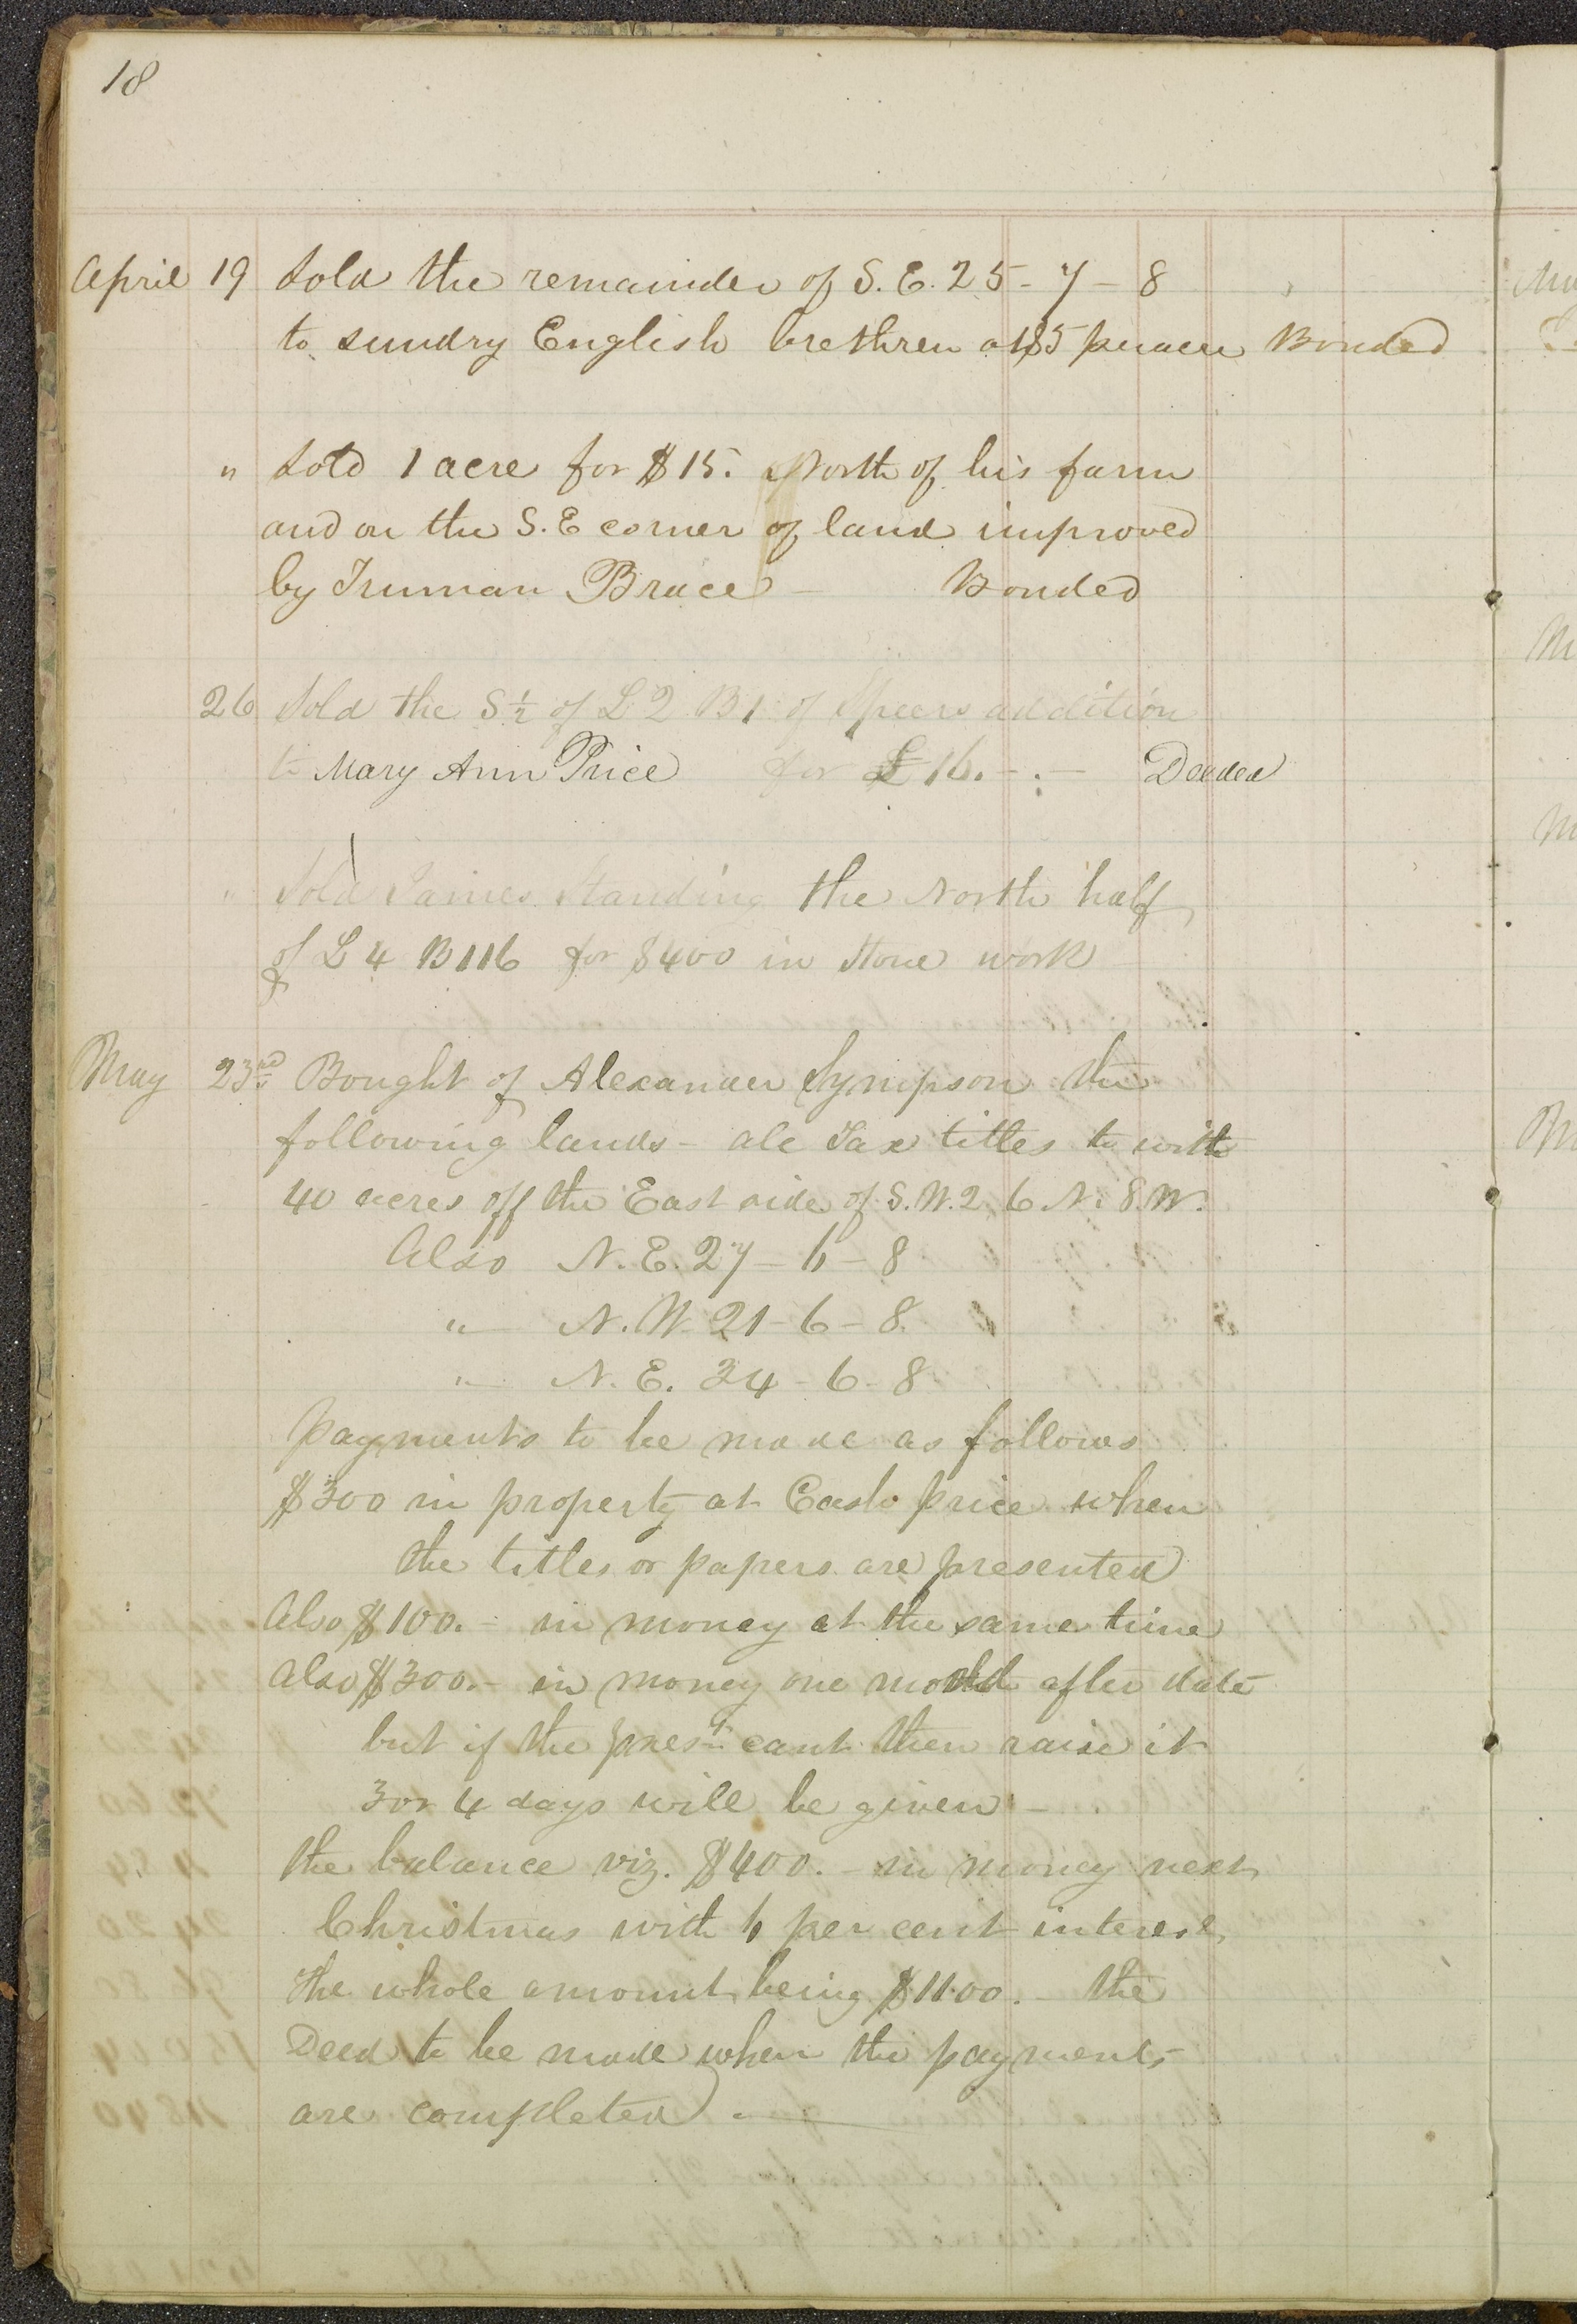 18
April 19 Sold the remainder of S. E. 25 - 7 - 8
to sundry English brethren at $5 per acre Bonded
" Sold 1 acre for $15. North of his farm
and on the S. E corner of land improved
by Truman Brace - Bonded
26 Sold the S ½ of L 2 B 1 of Speers addition
to Mary Ann Price for £ 16. - . - Deeded
" Sold James Standing the North half
of L 4 B 116 for $400 in Stone work
May 23rd Bought of Alexander Sympson the
following lands - all Tax titles to wit
40 acres off the East side of S. W. 2 6 N. 8. W.
Also N. E. 27 - 6 - 8
" N. W. 21 - 6 - 8
" N. E. 34 - 6 - 8
payments to be made as follows
$300 in property at Cash price when
the titles or papers are presented
Also $100. - in money at the same time
Also $300. - in money one month after date
but if the prest cant then raise it
3 or 4 days will be given -
the balance viz. $400. - in money next
Christmas with 6 per cent interest,
The whole amount being $1100. - the
Deed to be made when the payments
are completed -